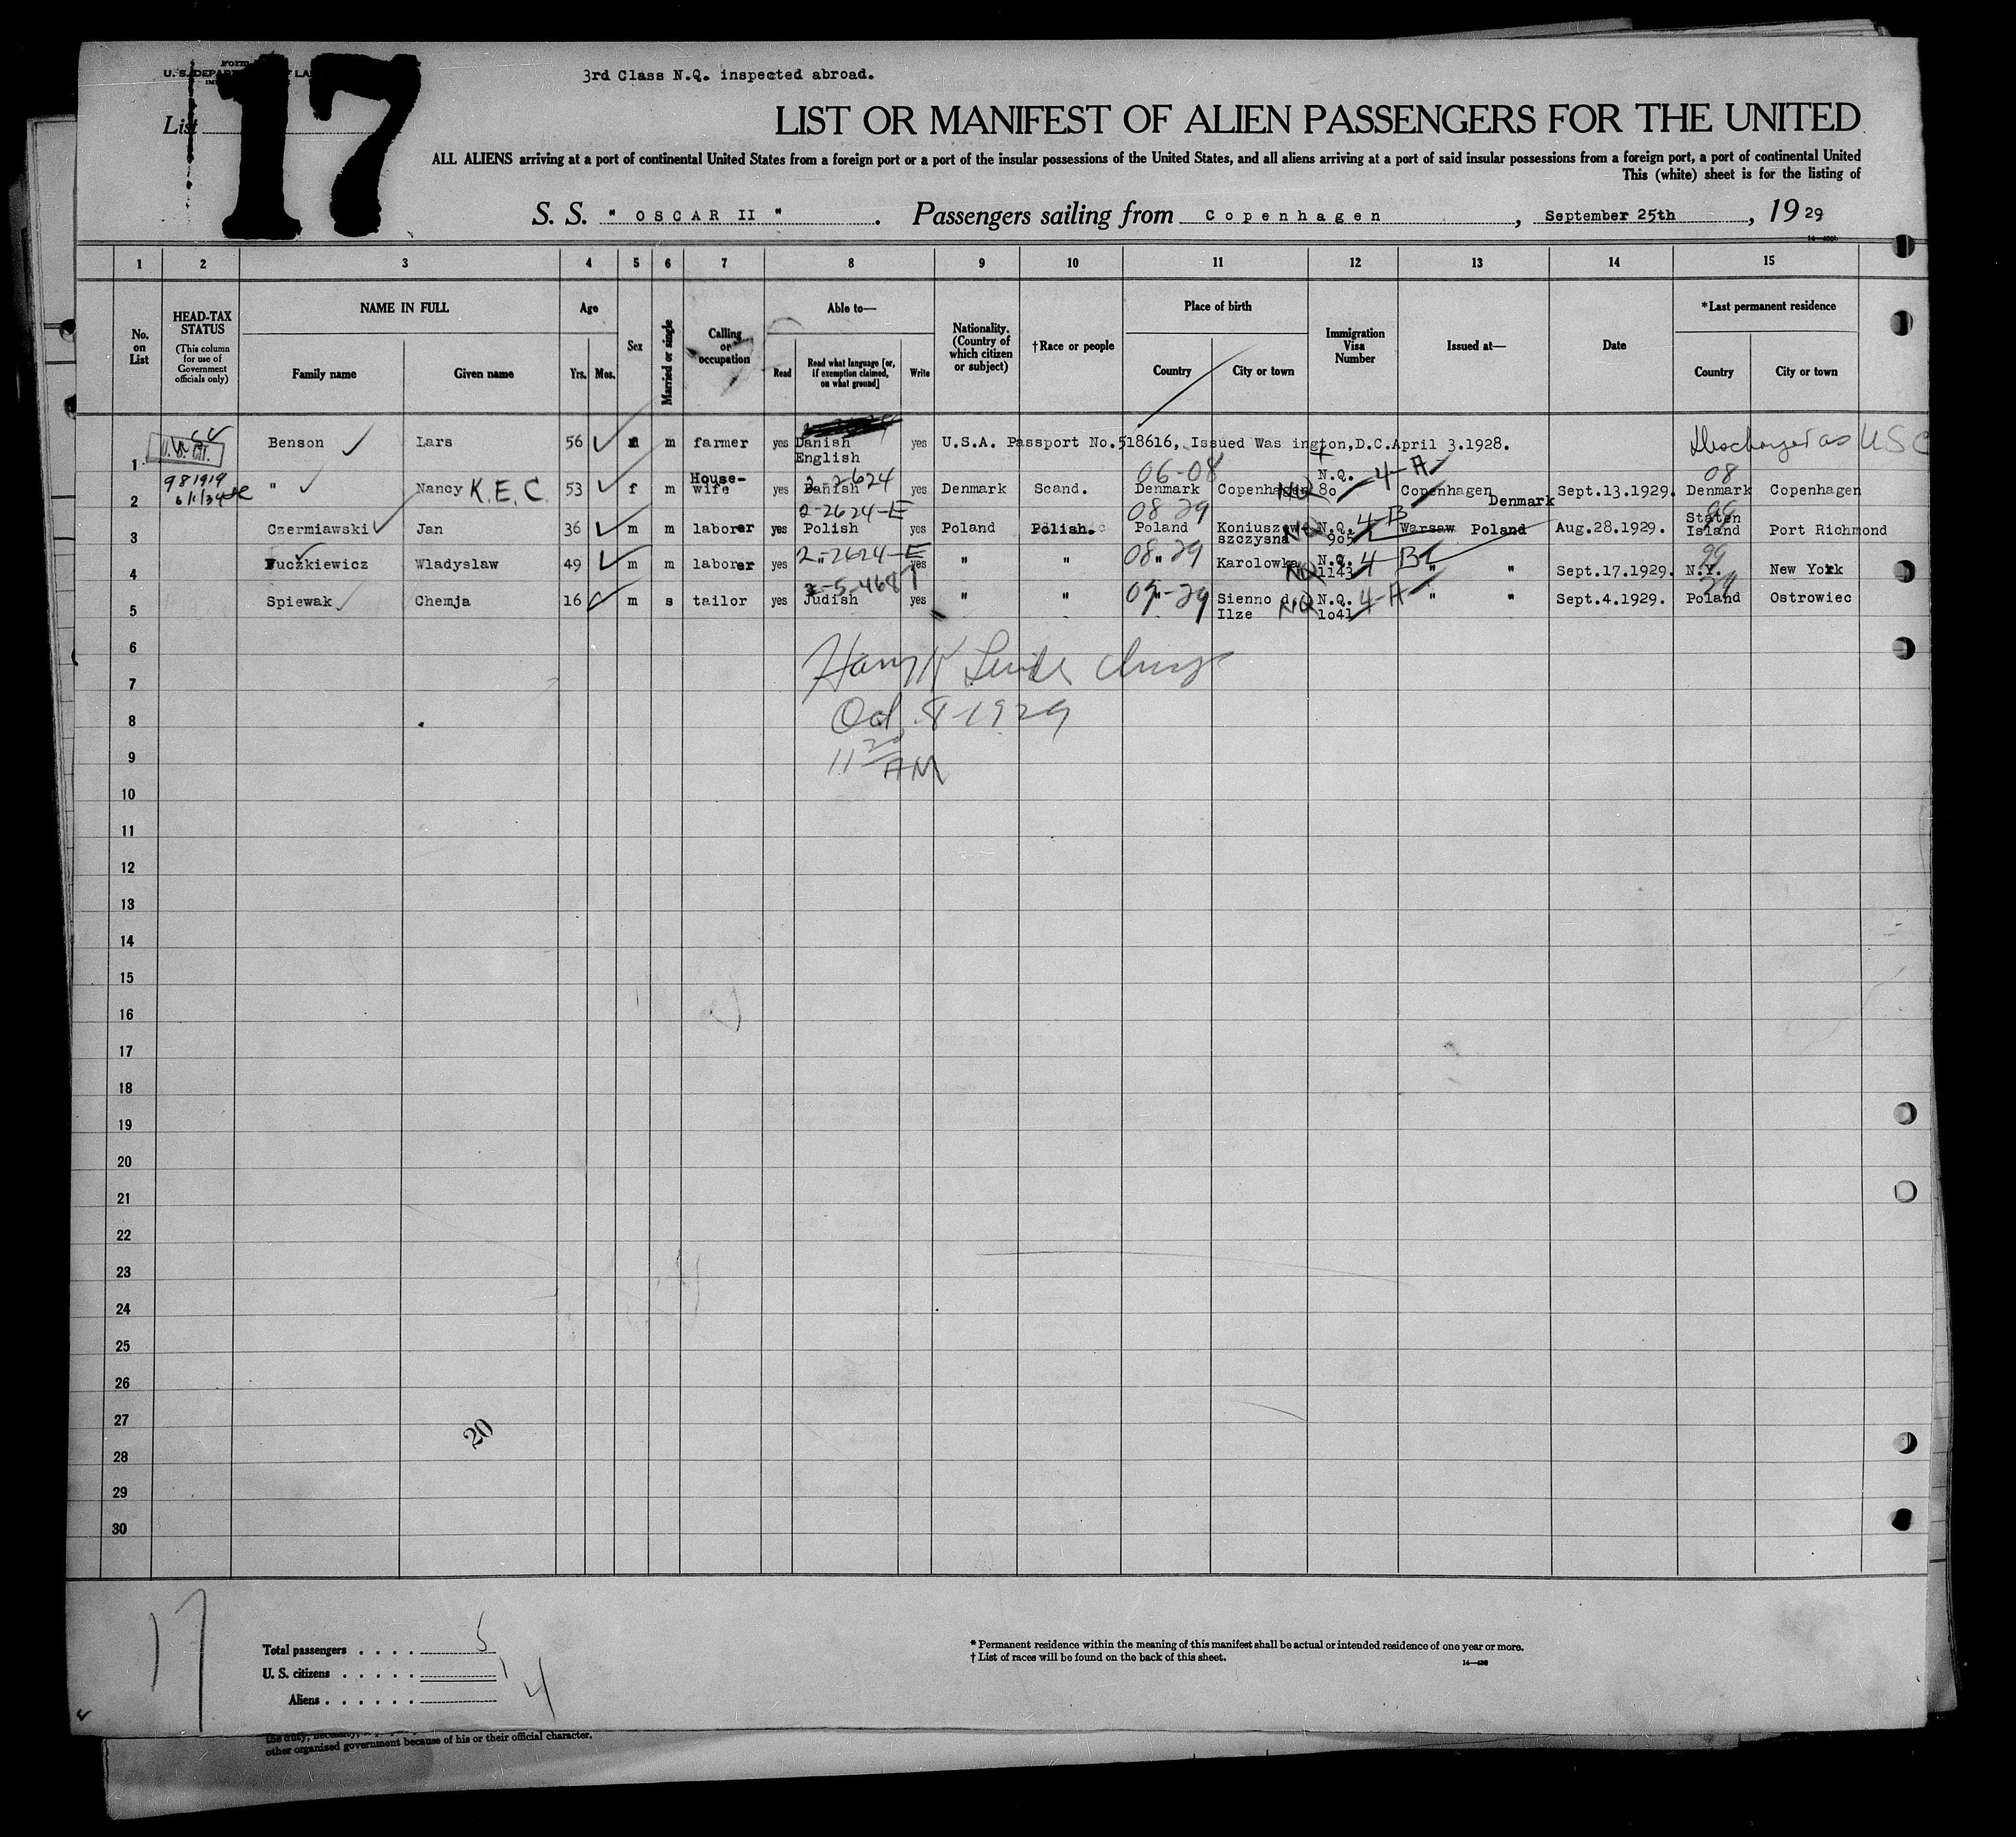 3rd Class N.Q. inspected abroad.
17
List
LIST OR MANIFEST OF ALIEN PASSENGERS FOR THE UNITED
ALL ALIENS arriving at a port of continental United States from a foreign port or a port of the insular possessions of the United States, and all aliens arriving at a port of said insular possessions from a foreign port, a port of continental United
This (white) sheet is for the listing of
S. S. " OSCAR II ". Passengers sailing from Copenhagen, September 25th, 1929
1 2 3 4 5 6 7 8 9 10 11 12 13 14 15
No. on List
HEAD-TAX STATUS (This column for use of Government officials only)
NAME IN FULL
Family name Given name
Age
Yrs. Mos.
Sex
Married or single
Calling or occupation
Able to—
Read Read what language [or, if exemption claimed, on what ground] Write
Nationality. (Country of which citizen or subject)
†Race or people
Place of birth
Country City or town
Immigration Visa Number
Issued at—
Date
*Last permanent residence
Country City or town
1 U.S. CIT. Benson Lars 56 m m farmer yes Danish English yes U.S.A. Passport No.518616. Issued Was ington,D.C.April 3.1928. Discharged as USC
981919 2-2624 06-08 N.Q. 4-A 08
2 6/1/34 " Nancy K.E.C. 53 f m House-wife yes Danish yes Denmark Scand. Denmark Copenhagen NQ 80 Copenhagen Denmark Sept.13.1929. Denmark Copenhagen
2-2624-E 08-29 4-B 99
3 Czermiawski Jan 36 m m laborer yes Polish yes Poland Polish. Poland Koniuszew-szczysna NQ N.Q. 905 Warsaw Poland Aug.28.1929. Staten Island Port Richmond
2-2624-E 08-29 4-B 99
4 Fuczkiewicz Wladyslaw 49 m m laborer yes " yes " " " Karolowka NQ N.Q. 1143 " " Sept.17.1929. N.Y. New York
2-5-468 09-29 4-A 29
5 Spiewak Chemja 16 m s tailor yes Judish yes " " " Sienno d. Ilze NQ N.Q. 1041 " " Sept.4.1929. Poland Ostrowiec
6
7
Oct 8-1929
8
11 20 AM
9
10
11
12
13
14
15
16
17
18
19
20
21
22
23
24
25
26
27
20
28
29
30
17
Total passengers . . . . 5
U. S. citizens . . . . . 1
Aliens . . . . . . 4
* Permanent residence within the meaning of this manifest shall be actual or intended residence of one year or more.
† List of races will be found on the back of this sheet.
14—430
other organized government because of his or their official character.